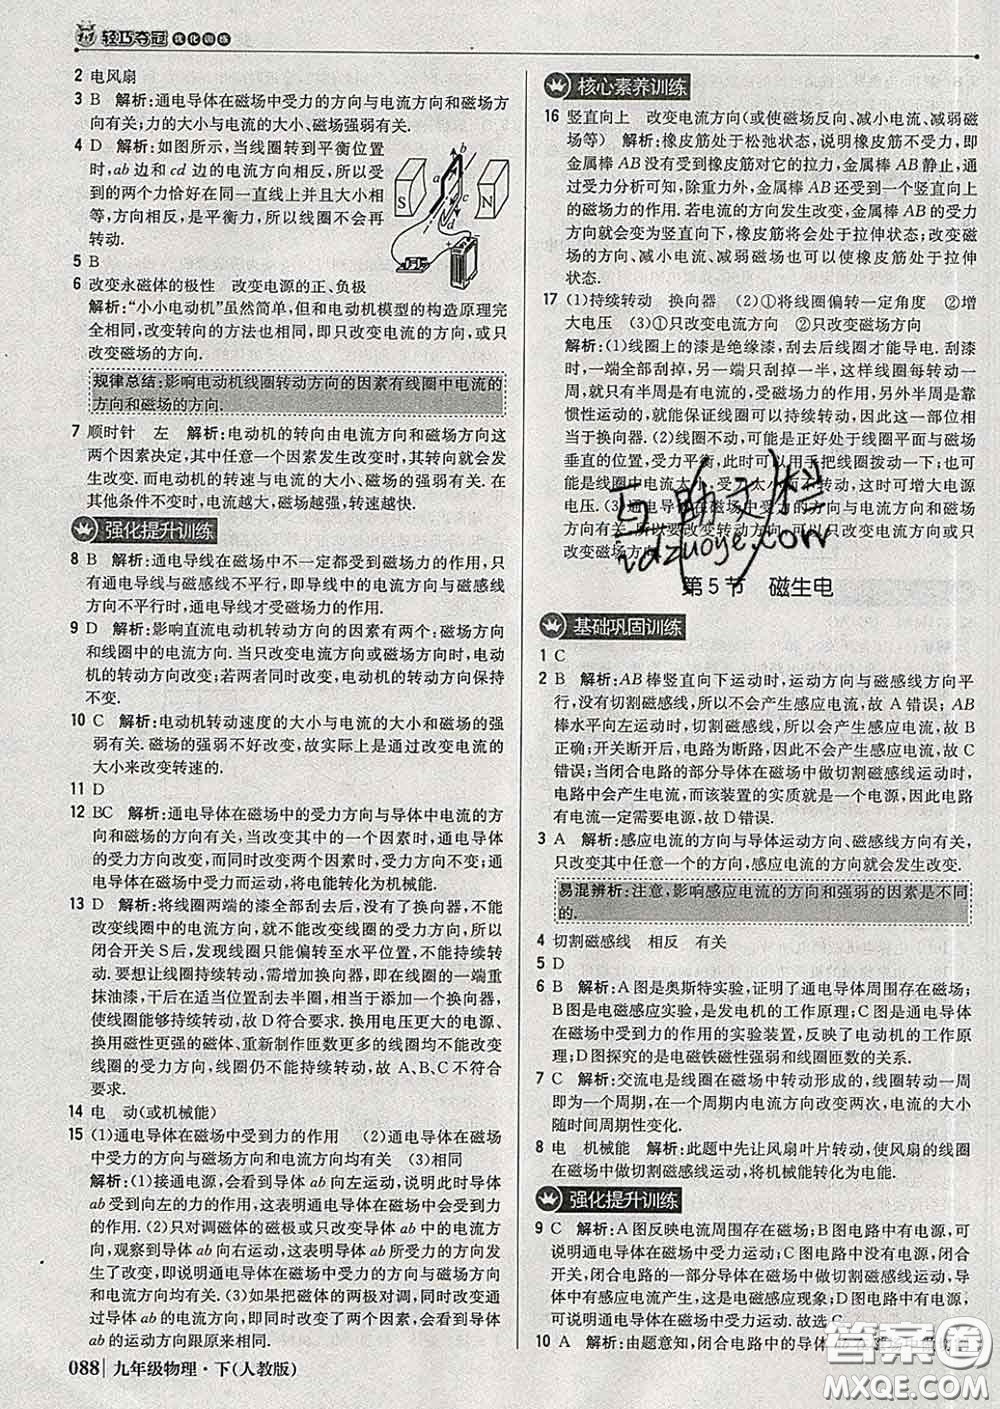 1+1 轻巧夺冠 优化训练
2 电风扇
3 B 解析:通电导体在磁场中受力的方向与电流方向和磁场方
向有关;力的大小与电流的大小、磁场强弱有关.
4 D 解析:如图所示,当线圈转到平衡位置
时,ab边和cd边的电流方向相反,所以受
到的两个力恰好在同一直线上并且大小相
等,方向相反,是平衡力,所以线圈不会再
转动.
a
b
c
d
S
N
5 B
6 改变永磁体的极性 改变电源的正、负极
解析:“小小电动机”虽然简单,但和电动机模型的构造原理完
全相同,改变转向的方法也相同,即只改变电流的方向,或只
改变磁场的方向.
规律总结:影响电动机线圈转动方向的因素有线圈中电流的
方向和磁场的方向.
7 顺时针 左 解析:电动机的转向由电流方向和磁场方向这
两个因素决定,其中任意一个因素发生改变时,其转向就会发
生改变.而电动机的转速与电流的大小、磁场的强弱有关.在
其他条件不变时,电流越大,磁场越强,转速越快.
强化提升训练
8 B 解析:通电导线在磁场中不一定都受到磁场力的作用,只
有通电导线与磁感线不平行,即导线中的电流方向与磁感线
方向不平行时,通电导线才受磁场力的作用.
9 D 解析:影响直流电动机转动方向的因素有两个:磁场方向
和线圈中的电流方向.当只改变电流方向或磁场方向时,电动
机的转动方向改变;若两者同时改变,电动机转动方向保持
不变.
10 C 解析:电动机转动速度的大小与电流的大小和磁场的强
弱有关.磁场的强弱不好改变,故实际上是通过改变电流的
大小来改变转速的.
11 D
12 BC 解析:通电导体在磁场中的受力方向与导体中电流的方
向和磁场的方向有关,当改变其中的一个因素时,通电导体
的受力方向改变,而同时改变两个因素时,受力方向不变;通
电导体在磁场中受力而运动,将电能转化为机械能.
13 D 解析:将线圈两端的漆全部刮去后,没有了换向器,不能
改变线圈中的电流方向,就不能改变线圈的受力方向,所以
闭合开关S后,发现线圈只能偏转至水平位置,不能持续转
动.要想让线圈持续转动,需增加换向器,即在线圈的一端重
抹油漆,干后在适当位置刮去半圈,相当于增加一个换向器,
使线圈能够持续转动,故D符合要求.换用电压更大的电源、
换用磁性更强的磁体、重新制作匝数更多的线圈均不能改变
线圈的受力方向,线圈仍不能持续转动,故A、B、C均不符合
要求.
14 电 动(或机械能)
15 (1)通电导体在磁场中受到力的作用 (2)通电导体在磁场
中受力的方向与磁场方向和电流方向均有关 (3)相同
解析:(1)接通电源,会看到导体ab向左运动,说明此时导体
ab受到向左的力的作用,这表明通电导体在磁场中会受到力
的作用.(2)只对调磁体的磁极或只改变导体ab中的电流方
向,观察到导体ab向右运动,这表明导体ab所受力的方向发
生了改变,即说明通电导体在磁场中受力的方向与磁场方向
和电流方向均有关.(3)如果把磁体的两极对调,同时改变导
体ab的电流方向,即同时改变了两个因素,则会看到导体
ab的运动方向跟原来相同.
088 九年级物理·下(人教版)
核心素养训练
16 竖直向上 改变电流方向(或使磁场反向、减小电流、减弱磁
场等) 解析:橡皮筋处于松弛状态,说明橡皮筋不受力,即
金属棒AB没有受到橡皮筋对它的拉力,金属棒AB静止,通
过受力分析可知,除重力外,金属棒AB还受到一个竖直向上
的磁场力的作用.若电流的方向发生改变,金属棒AB的受力
方向就会变为竖直向下,橡皮筋将会处于拉伸状态;改变磁
场的方向、减小电流、减弱磁场也可以使橡皮筋处于拉伸
状态.
17 (1)持续转动 换向器 (2)①将线圈偏转一定角度 ②增
大电压 (3)①只改变电流方向 ②只改变磁场方向
解析:(1)线圈上的漆是绝缘漆,刮去后线圈才能导电.刮漆
时,一端全部刮掉,另一端只刮掉一半,这样线圈每转动一
周,就有半周是有电流的,受磁场力的作用,另外半周是靠
惯性运动的,就能保证线圈可以持续转动,因此这一部位相
当于换向器.(2)线圈不动,可能是正好处于线圈平面与磁场
垂直的位置,受力平衡,此时可以用手把线圈拨动一下;也可
能是线圈中电流太小,受力太小而不能转动,这时可增大电源
电压.(3)通电导体在磁场中受力的方向与电流方向和磁场
方向有关,所以要改变转动方向,可以只改变电流方向或只
改变磁场方向.
互助文档
hdzuoye.com
第5节 磁生电
基础巩固训练
1 C
2 B 解析:AB棒竖直向下运动时,运动方向与磁感线方向平
行,没有切割磁感线,所以不会产生感应电流,故A错误;AB
棒水平向左运动时,切割磁感线,所以会产生感应电流,故B
正确;开关断开后,电路为断路,因此不会产生感应电流,故C
错误;当闭合电路的部分导体在磁场中做切割磁感线运动时,
电路中会产生电流,而该装置的实质就是一个电源,因此电路
有电流一定需要电源,故D错误.
3 A 解析:感应电流的方向与导体运动方向、磁感线方向有关,
只改变其中任意一个的方向,感应电流的方向就会发生改变.
易混辨析:注意,影响感应电流的方向和强弱的因素是不同
的.
4 切割磁感线 相反 有关
5 D
6 B 解析:A图是奥斯特实验,证明了通电导体周围存在磁场;
B图是电磁感应实验,是发电机的工作原理;C图是通电导体
在磁场中受到力的作用的实验装置,反映了电动机的工作原
理;D图探究的是电磁铁磁性强弱和线圈匝数的关系.
7 C 解析:交流电是线圈在磁场中转动形成的,线圈转动一周
即为一个周期,在一个周期内电流方向改变两次,电流的大小
随时间周期性变化.
8 电 机械能 解析:此题中先让风扇叶片转动,使风扇的线圈
在磁场中做切割磁感线运动,将机械能转化为电能.
强化提升训练
9 C 解析:A图反映电流周围存在磁场;B图电路中有电源,可
说明通电导体在磁场中受力运动;C图电路中没有电源,闭合
开关,闭合电路的一部分导体在磁场中做切割磁感线运动,导
体中有感应电流产生,这是电磁感应现象;D图电路中有电源,
可说明通电导体在磁场中受力运动.故选C.
10 A 解析:由题意知,闭合电路中的导体
答案圈
MXQE.COM